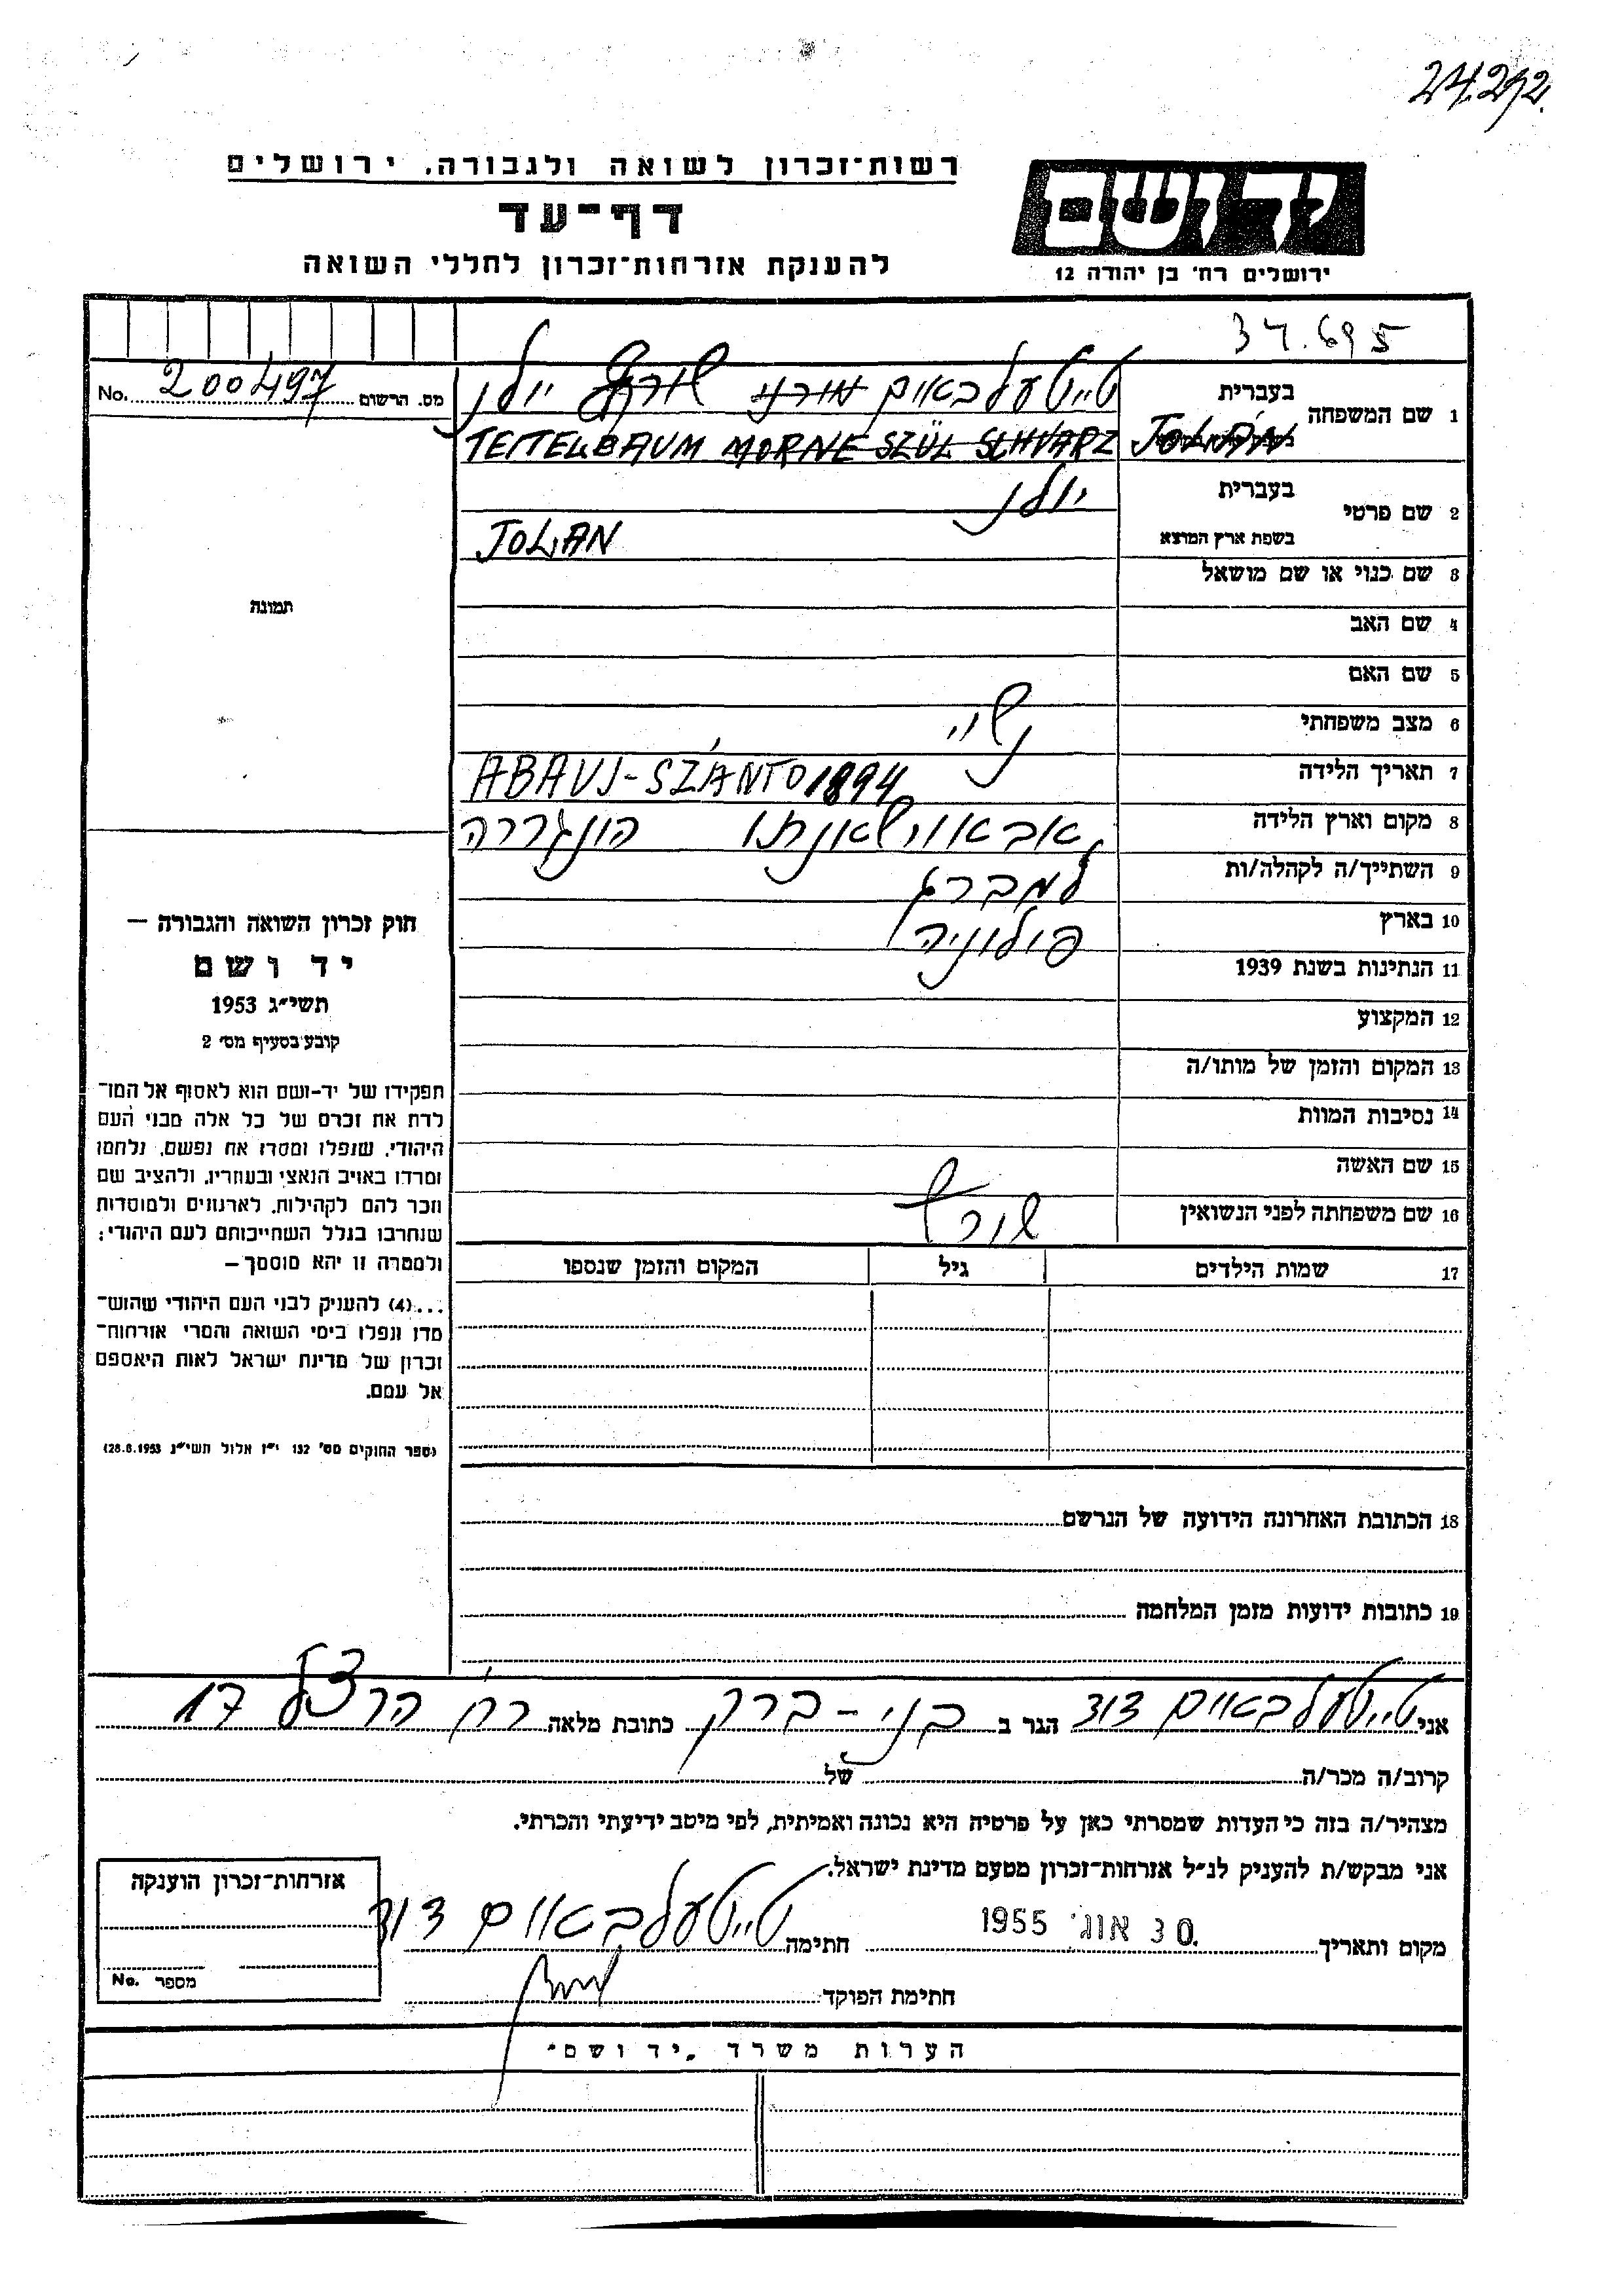 24.2/12.
רשות־זכרון לשואה ולגבורה, ירושלים
דף־עד
להענקת אזרחות־זכרון לחללי השואה
יד ושם
ירושלים רח' בן יהודה 12
37.695
מס. הרשום 200497 No.
1 שם המשפחה בעברית טייטעלבאום מורנע שורץ יולן
TEITELBAUM MORNE SZÜL SCHVARZ JOLÁN
2 שם פרטי בעברית יולן
בשפת ארץ המוצא JOLAN
3 שם כנוי או שם מושאל
4 שם האב
5 שם האם
6 מצב משפחתי נשוי
7 תאריך הלידה ABAUJ-SZÁNTO 1894
8 מקום וארץ הלידה אבאוישאנתו הונגריה
9 השתייך/ה לקהלה/ות למברג
10 בארץ פולוניה
11 הנתינות בשנת 1939
12 המקצוע
13 המקום והזמן של מותו/ה
14 נסיבות המוות
15 שם האשה
16 שם משפחתה לפני הנשואין שורץ
17 שמות הילדים גיל המקום והזמן שנספו
תמונה
חוק זכרון השואה והגבורה —
יד ושם
תשי״ג 1953
קובע בסעיף מס׳ 2
תפקידו של יד-ושם הוא לאסוף אל המו־
לדת את זכרם של כל אלה מבני העם
היהודי, שנפלו ומסרו את נפשם, נלחמו
ומרדו באויב הנאצי ובעוזריו, ולהציב שם
וזכר להם לקהילות, לארגונים ולמוסדות
שנחרבו בגלל השתייכותם לעם היהודי;
ולמטרה זו יהא מוסמך —
...(4) להעניק לבני העם היהודי שהוש־
מדו ונפלו בימי השואה והמרי אזרחות־
זכרון של מדינת ישראל לאות היאספם
אל עמם.
(ספר החוקים מס׳ 132 י״ז אלול תשי״ג 28.8.1953)
18 הכתובת האחרונה הידועה של הנרשם
19 כתובות ידועות מזמן המלחמה
אני טייטעלבאום דוד הגר ב בני-ברק כתובת מלאה רח' הרצל 17
קרוב/ה מכר/ה של
מצהיר/ה בזה כי העדות שמסרתי כאן על פרטיה היא נכונה ואמיתית, לפי מיטב ידיעתי והכרתי.
אני מבקש/ת להעניק לנ״ל אזרחות־זכרון מטעם מדינת ישראל.
מקום ותאריך 30 אוג' 1955 חתימה טייטעלבאום דוד
חתימת הפוקד
אזרחות־זכרון הוענקה
מספר No.
הערות משרד „יד ושם"